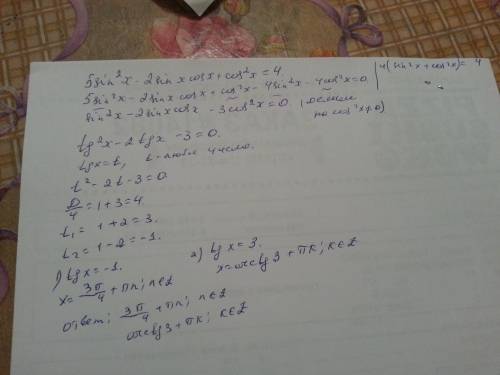 5sin²x - 2sinx cosx + cos²x = 4.
4(sin²x + cos²x) = 4
5sin²x - 2sinx cosx + cos²x - 4sin²x - 4cos²x = 0
sin²x - 2sinx cosx - 3cos²x = 0 (делим на cos²x≠0)
tg²x - 2tgx - 3 = 0.
tgx = t, t - любое число.
t² - 2t - 3 = 0
D/4 = 1 + 3 = 4.
t₁ = 1 + 2 = 3.
t₂ = 1 - 2 = -1.
1) tgx = -1.
x = 3π/4 + πn; n∈Z
2) tgx = 3.
x = arctg3 + πk; k∈Z
Ответ: 3π/4 + πn; n∈Z
arctg3 + πk; k∈Z